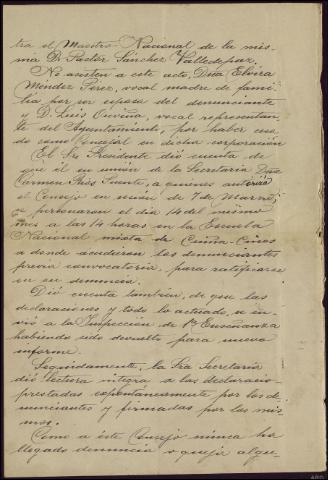 tra el Maestro Nacional de la mis-
ma D. Pastor Sánchez Valledepaz.
No asisten a este acto, Dña Elvira
Mendez Perez, vocal madre de fami-
lia por ser esposa del denunciante
y D. Luis, vocal representan-
te del Ayuntamiento, por haber cesa-
do como Concejal en dicha corporación
El Sr. Presidente dió cuenta de
que él en unión de la Secretaria Dña
Carmen Puente, a quienes autorizó
el Consejo en sesión de 7 de Marzo,
se personaron el día 14 del mismo
mes a las 14 horas en la Escuela
Nacional mixta de
a donde acudieron los denunciantes
previa convocatoria, para ratificarse
en su denuncia.
Dió cuenta también, de que las
declaraciones y todo lo actuado, se en-
vió a la Inspección de 1ª Enseñanza
habiendo sido devuelto para nuevo
informe.
Seguidamente, la Sra Secretaria
dió lectura integra a las declaracio-
prestadas espontáneamente por los de-
nunciantes y firmadas por los mis-
mos.
Como a éste Consejo nunca ha
llegado denuncia o queja algu-